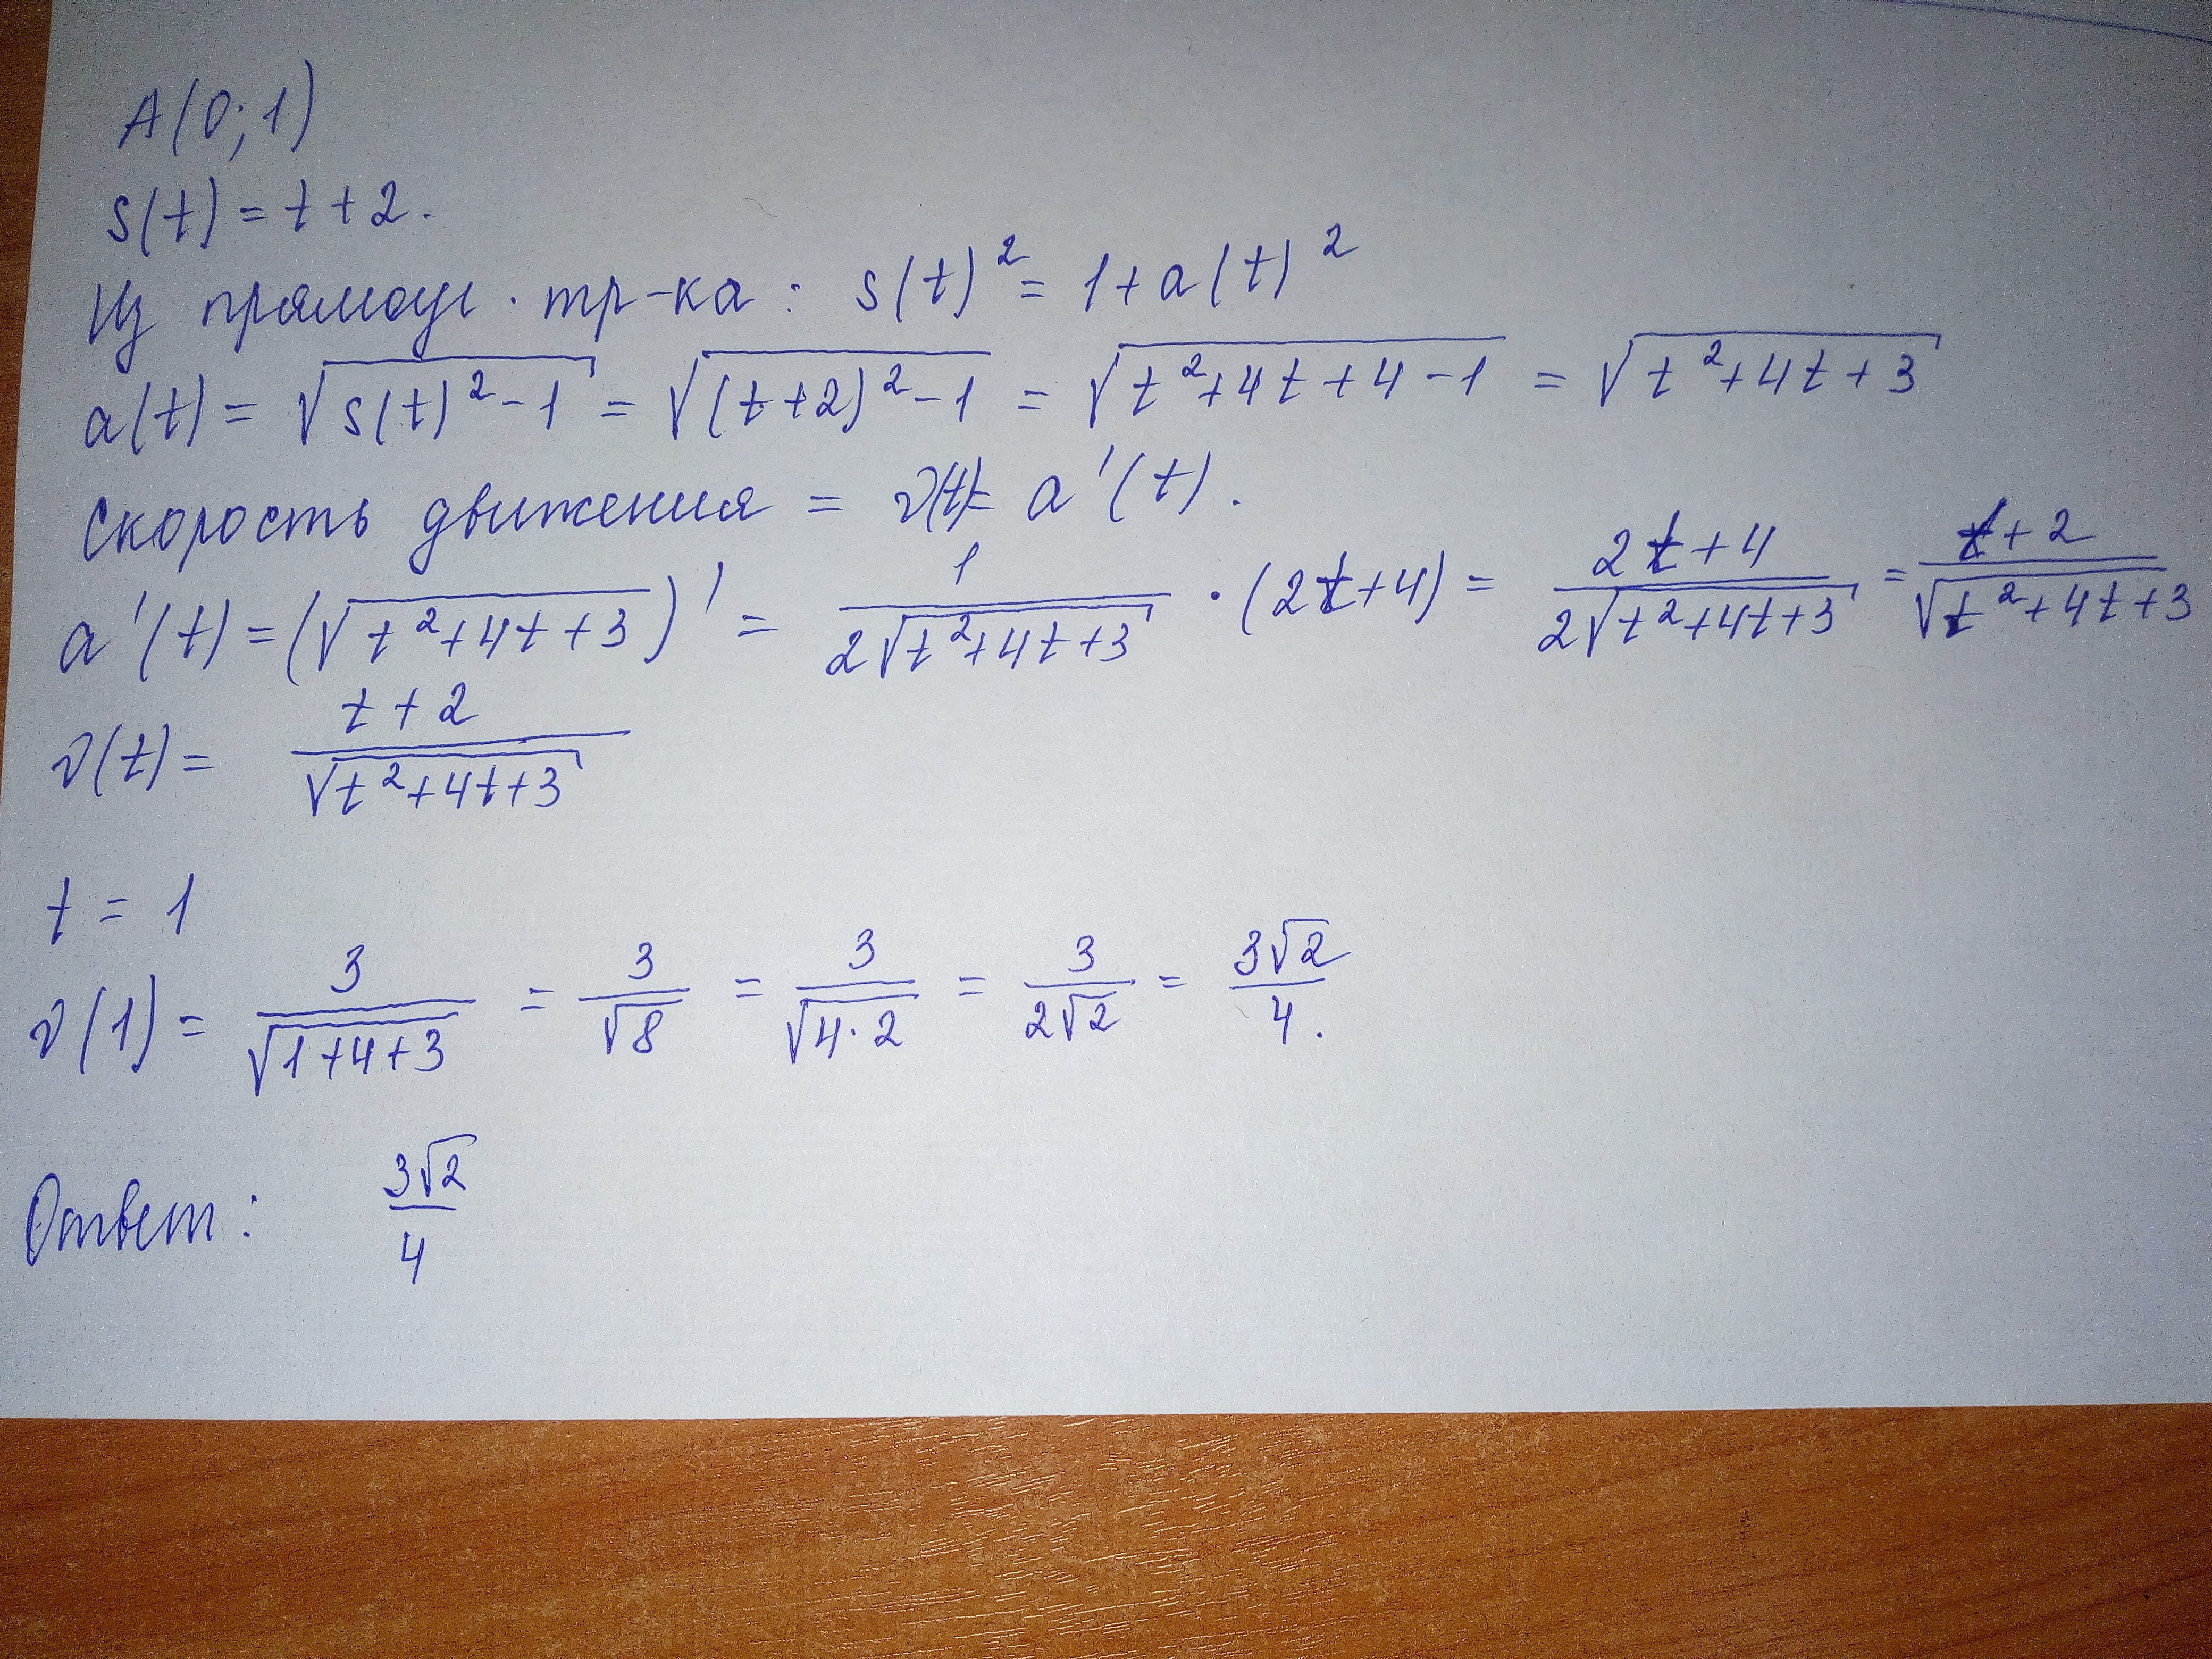 A(0;1)
s(t) = t + 2.
Из прямоуг. тр-ка: s(t)² = 1 + a(t)²
a(t) = √(s(t)² - 1) = √((t+2)² - 1) = √(t² + 4t + 4 - 1) = √(t² + 4t + 3)
Скорость движения = v(t) = a'(t).
a'(t) = (√(t² + 4t + 3))' = 1/(2√(t² + 4t + 3)) · (2t + 4) = (2t + 4)/(2√(t² + 4t + 3)) = (t + 2)/√(t² + 4t + 3)
v(t) = (t + 2)/√(t² + 4t + 3)
t = 1
v(1) = 3/√(1 + 4 + 3) = 3/√8 = 3/√(4·2) = 3/(2√2) = 3√2/4.
Ответ: 3√2/4